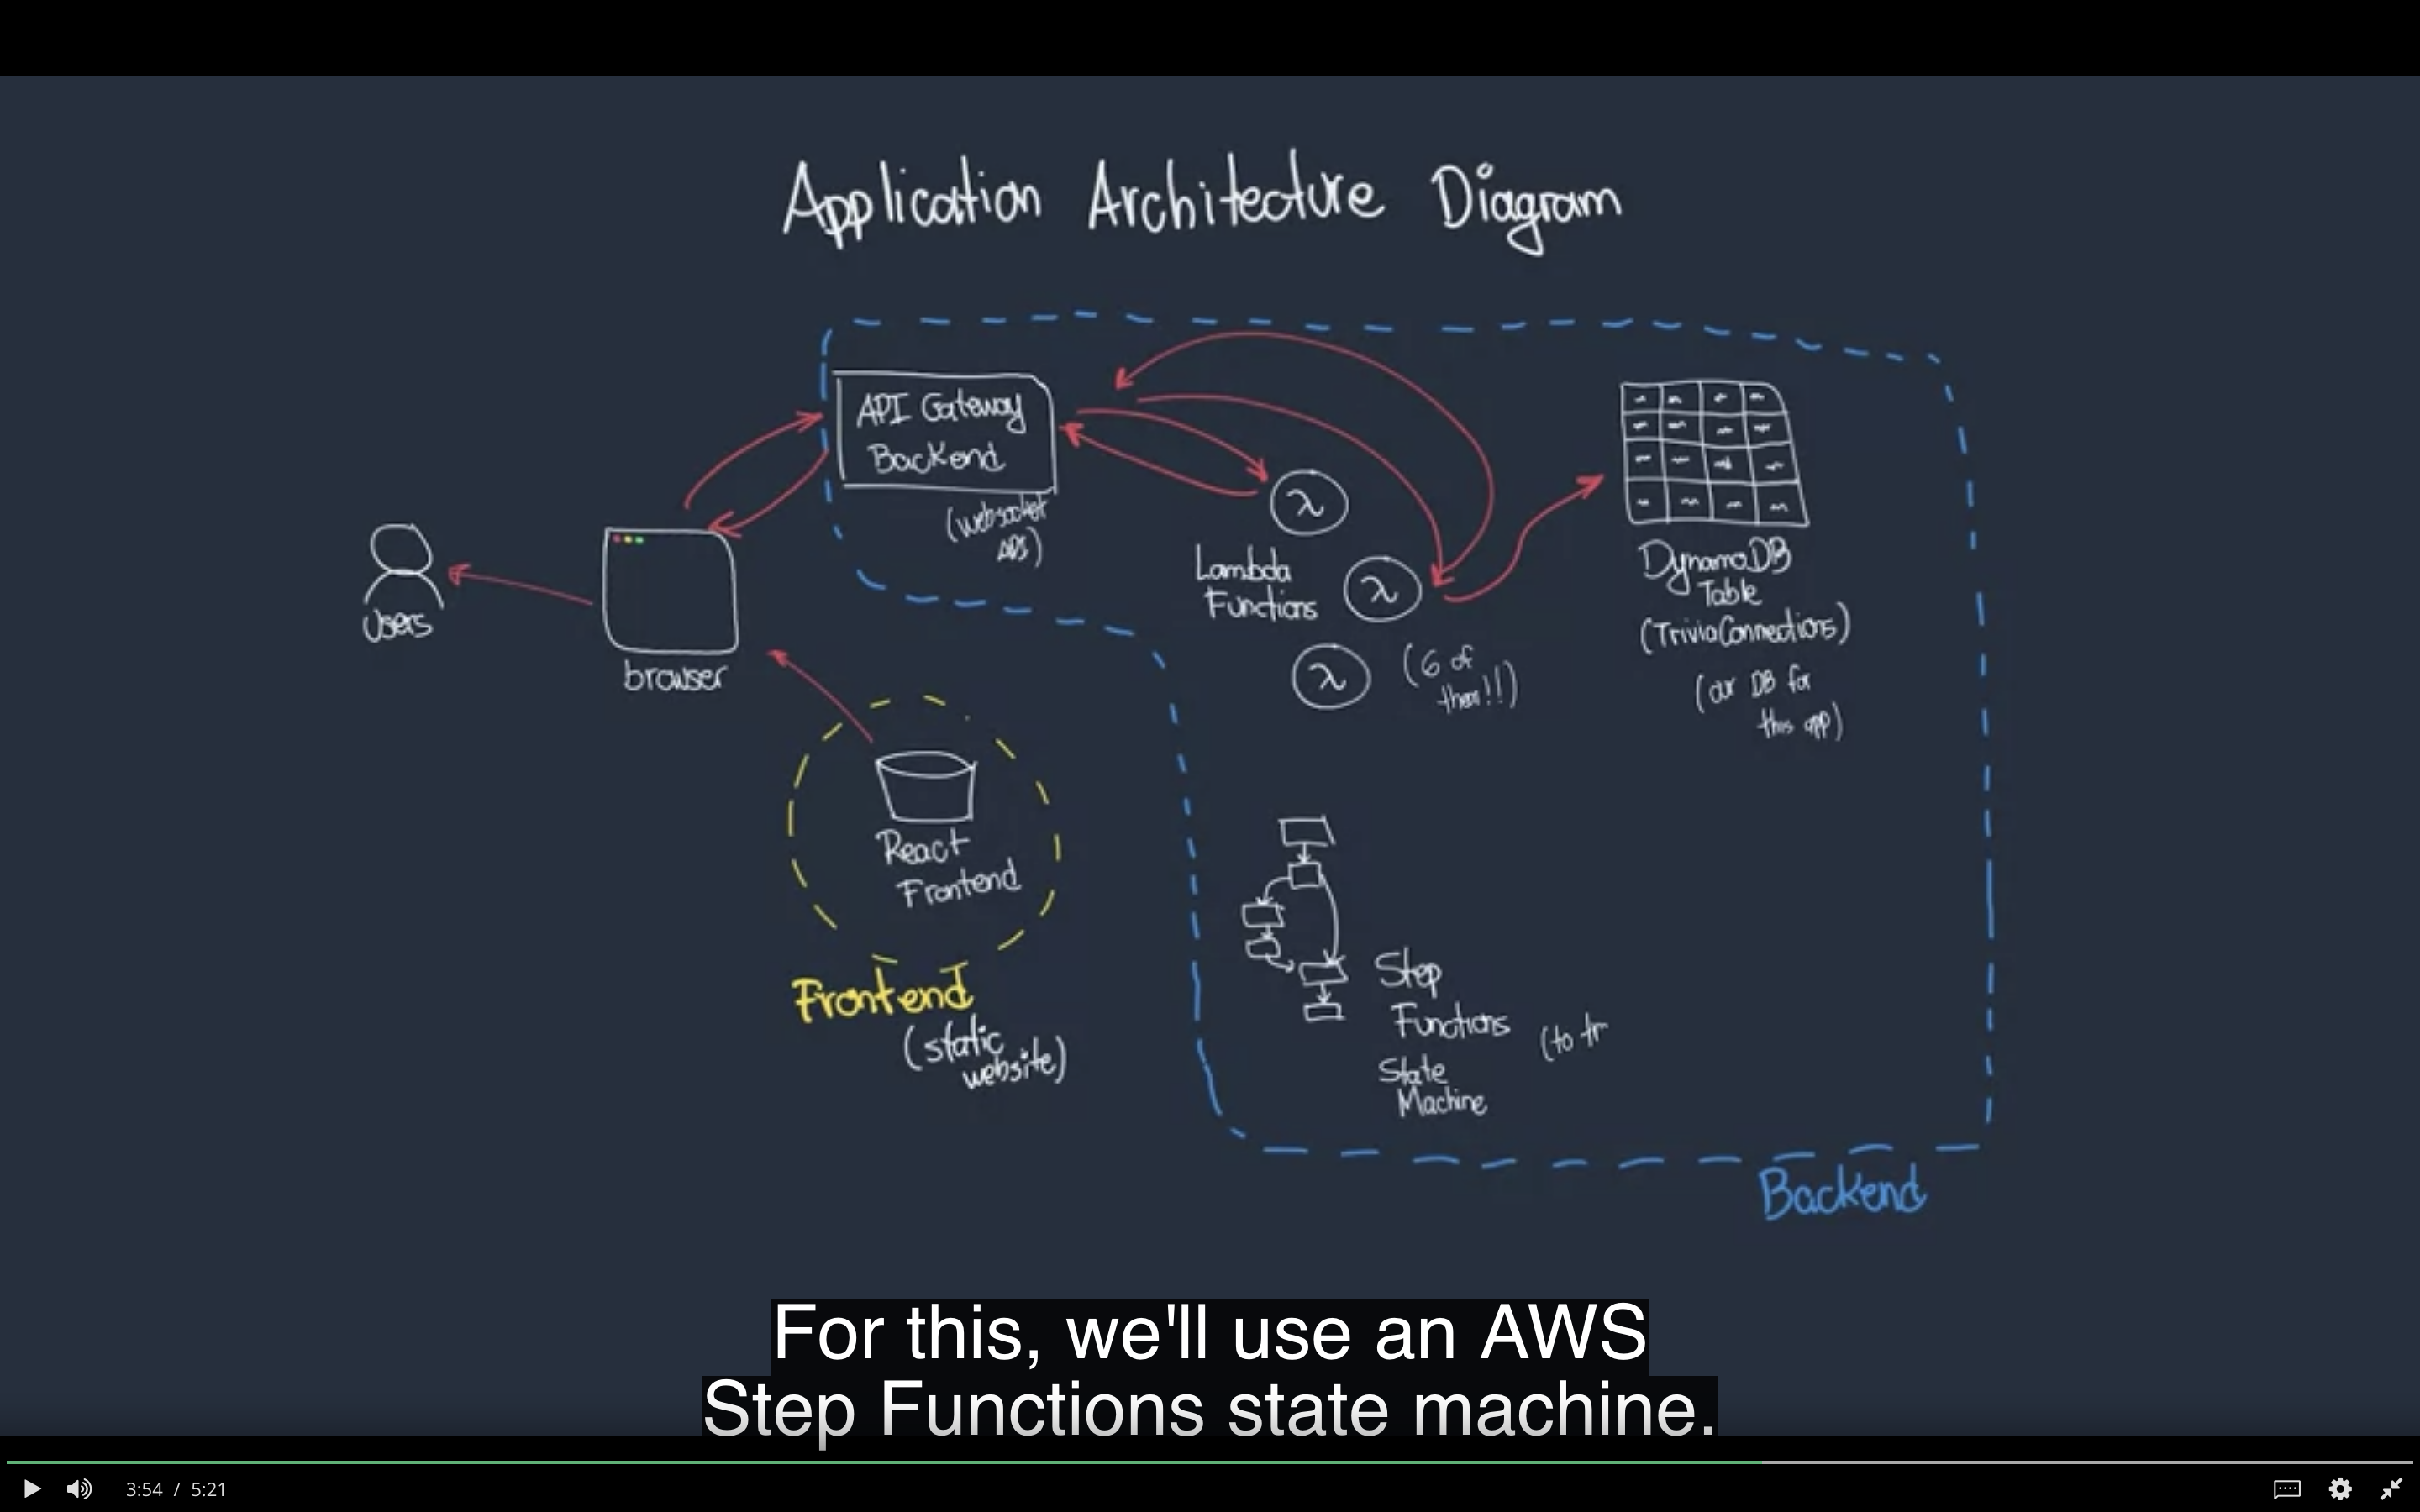 Application Architecture Diagram
API Gateway
Backend
(websocket
APIs)
Users
browser
Lambda
Functions
(6 of
them!!)
DynamoDB
Table
(TriviaConnections)
(our DB for
this app)
React
Frontend
Frontend
(static
website)
Step
Functions
State
Machine
(to tr
Backend
For this, we'll use an AWS
Step Functions state machine.
3:54 / 5:21